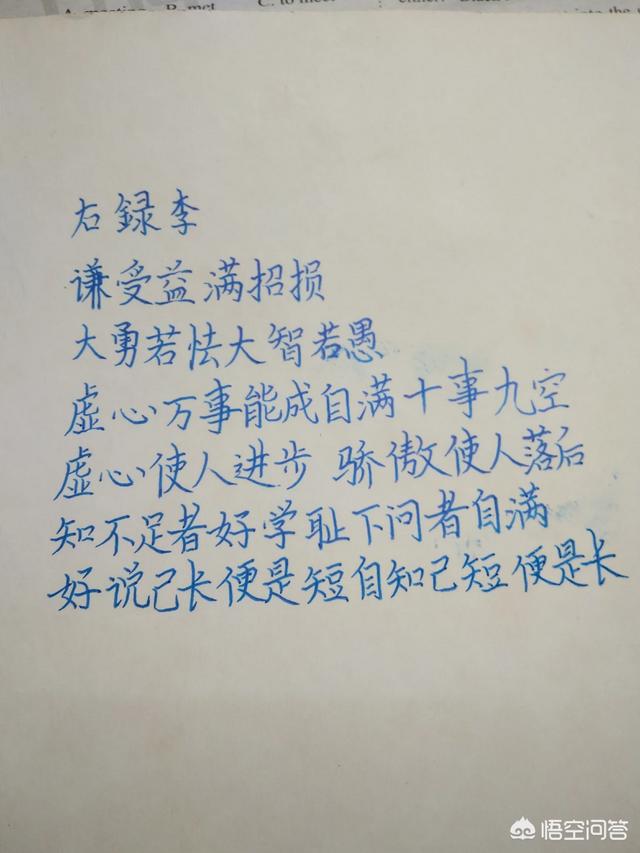 A. meeting B. met C. to meet
右録李
谦受益满招损
大勇若怯大智若愚
虚心万事能成自满十事九空
虚心使人进步 骄傲使人落后
知不足者好学耻下问者自满
好说己长便是短自知己短便是长
悟空问答